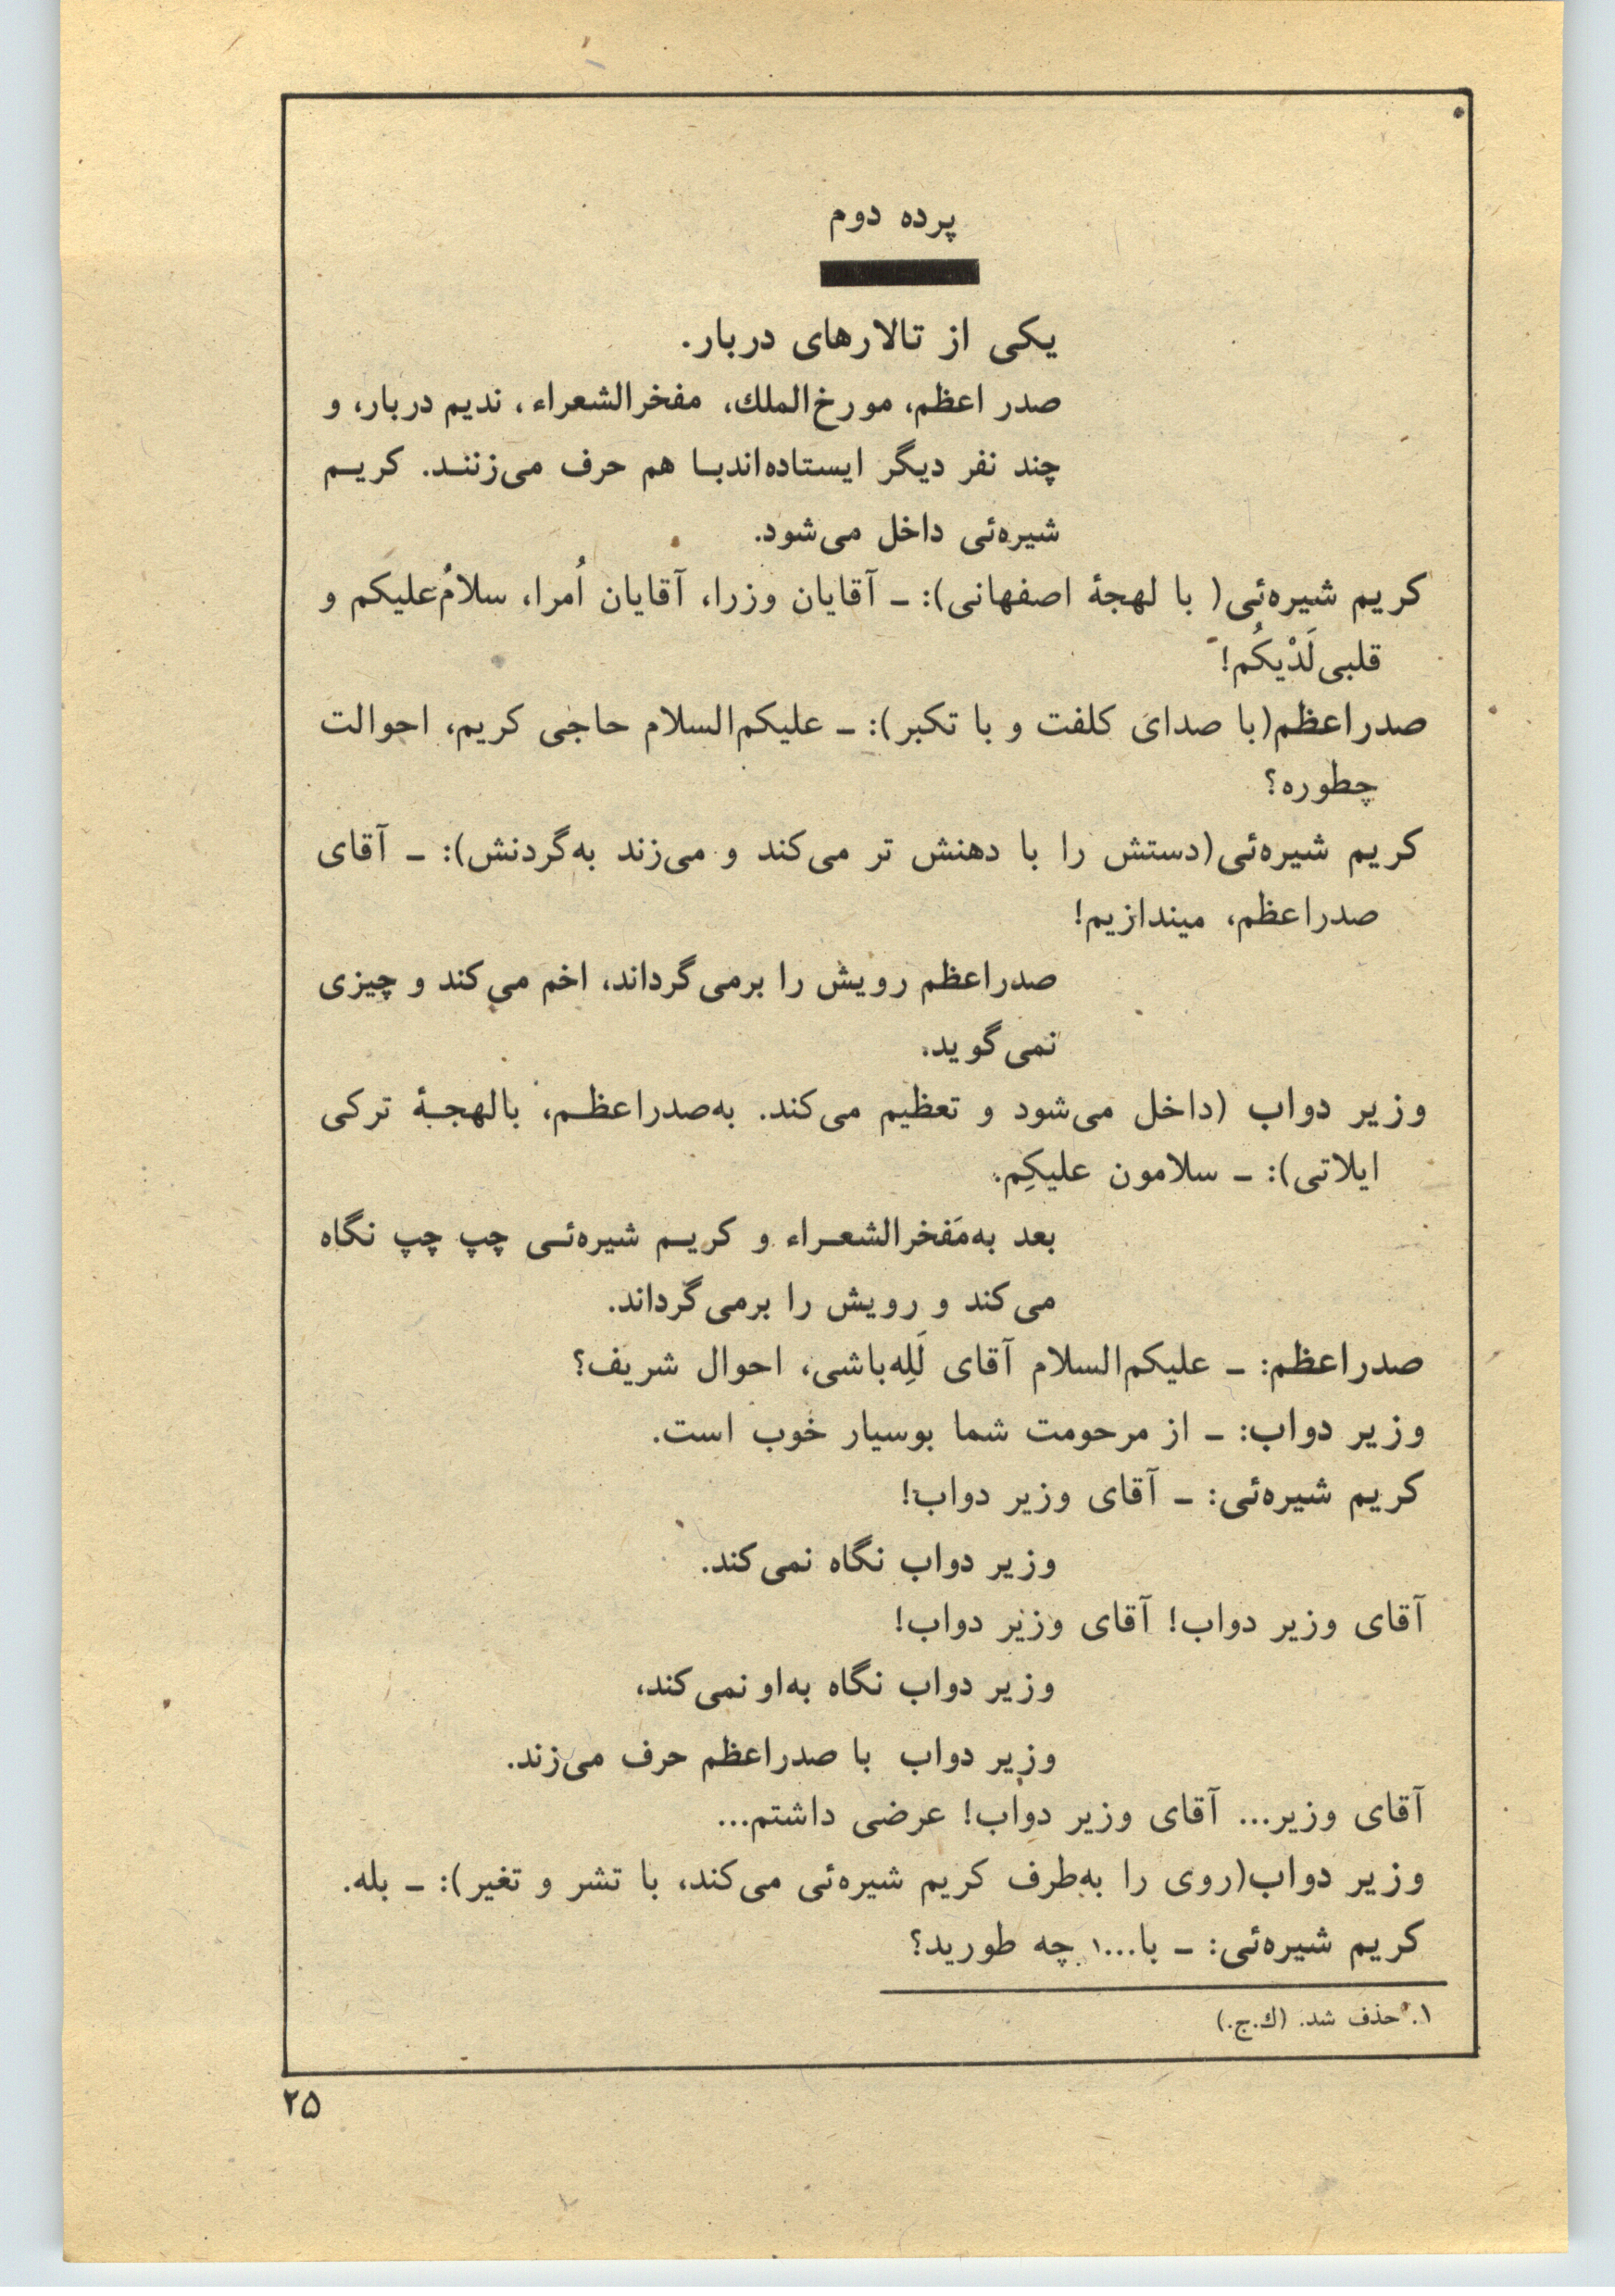 پرده دوم
یکی از تالارهای دربار.
صدر اعظم، مورخ‌الملك، مفخرالشعراء، ندیم دربار، و
چند نفر دیگر ایستاده‌اندبـا هم حرف می‌زننـد. کریـم
شیره‌ئی داخل می‌شود.
کریم شیره‌ئی( با لهجهٔ اصفهانی): ـ آقایان وزرا، آقایان اُمرا، سلامُ‌علیکم و
قلبی‌لَدْیکُم!
صدراعظم(با صدای کلفت و با تکبر): ـ علیکم‌السلام حاجی کریم، احوالت
چطوره؟
کریم شیره‌ئی(دستش را با دهنش تر می‌کند و می‌زند به‌گردنش): ـ آقای
صدراعظم، میندازیم!
صدراعظم رویش را برمی‌گرداند، اخم می‌کند و چیزی
نمی‌گوید.
وزیر دواب (داخل می‌شود و تعظیم می‌کند. به‌صدراعظـم، بالهجـهٔ ترکی
ایلاتی): ـ سلامون علیکِم.
بعد به‌مَفخرالشعـراء و کریـم شیره‌ئـی چپ چپ نگاه
می‌کند و رویش را برمی‌گرداند.
صدراعظم: ـ علیکم‌السلام آقای لَلِه‌باشی، احوال شریف؟
وزیر دواب: ـ از مرحومت شما بوسیار خوب است.
کریم شیره‌ئی: ـ آقای وزیر دواب!
وزیر دواب نگاه نمی‌کند.
آقای وزیر دواب! آقای وزیر دواب!
وزیر دواب نگاه به‌او نمی‌کند،
وزیر دواب با صدراعظم حرف می‌زند.
آقای وزیر... آقای وزیر دواب! عرضی داشتم...
وزیر دواب(روی را به‌طرف کریم شیره‌ئی می‌کند، با تشر و تغیر): ـ بله.
کریم شیره‌ئی: ـ با...۱ چه طورید؟
۱. حذف شد. (ك.ج.)
۲۵